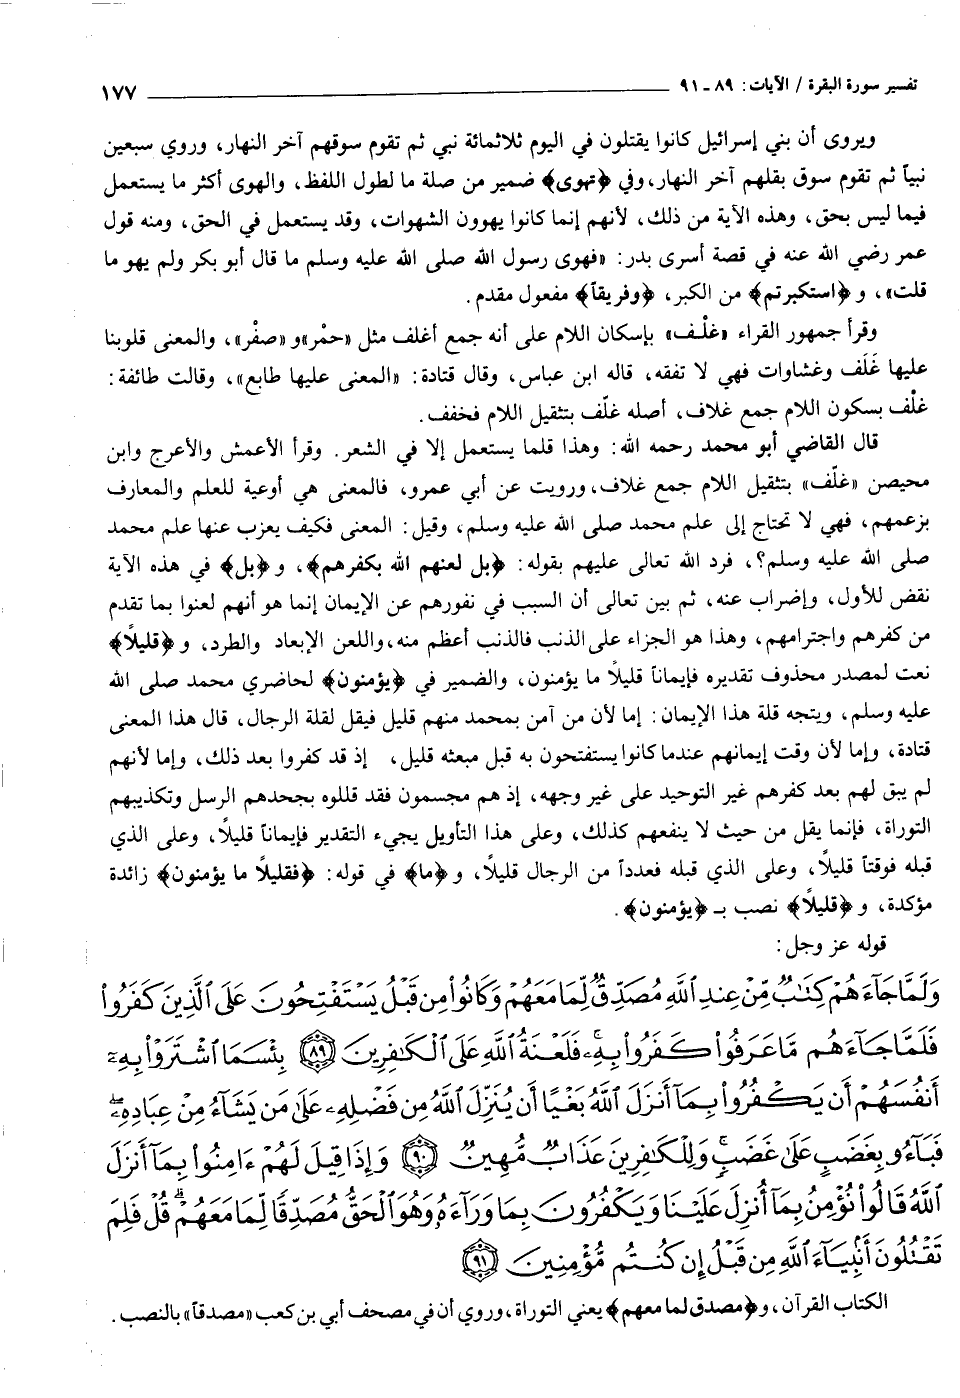 تفسير سورة البقرة / الآيات: ٨٩ ـ ٩١ ١٧٧
ويروى أن بني إسرائيل كانوا يقتلون في اليوم ثلاثمائة نبي ثم تقوم سوقهم آخر النهار، وروي سبعين
نبياً ثم تقوم سوق بقلهم آخر النهار، وفي ﴿تهوى﴾ ضمير من صلة ما لطول اللفظ، والهوى أكثر ما يستعمل
فيما ليس بحق، وهذه الآية من ذلك، لأنهم إنما كانوا يهوون الشهوات، وقد يستعمل في الحق، ومنه قول
عمر رضي الله عنه في قصة أسرى بدر: «فهوى رسول الله صلى الله عليه وسلم ما قال أبو بكر ولم يهو ما
قلت»، و﴿استكبرتم﴾ من الكبر، ﴿وفريقاً﴾ مفعول مقدم.
وقرأ جمهور القراء «غلْف» بإسكان اللام على أنه جمع أغلف مثل «حمْر» و «صفْر»، والمعنى قلوبنا
عليها غَلَف وغشاوات فهي لا تفقه، قاله ابن عباس، وقال قتادة: «المعنى عليها طابع»، وقالت طائفة:
غلْف بسكون اللام جمع غلاف، أصله غلّف بتثقيل اللام فخفف.
قال القاضي أبو محمد رحمه الله: وهذا قلما يستعمل إلا في الشعر. وقرأ الأعمش والأعرج وابن
محيصن «غلّف» بتثقيل اللام جمع غلاف، ورويت عن أبي عمرو، فالمعنى هي أوعية للعلم والمعارف
بزعمهم، فهي لا تحتاج إلى علم محمد صلى الله عليه وسلم، وقيل: المعنى فكيف يعزب عنها علم محمد
صلى الله عليه وسلم؟، فرد الله تعالى عليهم بقوله: ﴿بل لعنهم الله بكفرهم﴾، و﴿بل﴾ في هذه الآية
نقض للأول، وإضراب عنه، ثم بين تعالى أن السبب في نفورهم عن الإيمان إنما هو أنهم لعنوا بما تقدم
من كفرهم واجترامهم، وهذا هو الجزاء على الذنب فالذنب أعظم منه، واللعن الإبعاد والطرد، و﴿قليلاً﴾
نعت لمصدر محذوف تقديره فإيماناً قليلاً ما يؤمنون، والضمير في ﴿يؤمنون﴾ لحاضري محمد صلى الله
عليه وسلم، ويتجه قلة هذا الإيمان: إما لأن من آمن بمحمد منهم قليل فيقل لقلة الرجال، قال هذا المعنى
قتادة، وإما لأن وقت إيمانهم عندما كانوا يستفتحون به قبل مبعثه قليل، إذ قد كفروا بعد ذلك، وإما لأنهم
لم يبق لهم بعد كفرهم غير التوحيد على غير وجهه، إذ هم مجسمون فقد قللوه بجحدهم الرسل وتكذيبهم
التوراة، فإنما يقل من حيث لا ينفعهم كذلك، وعلى هذا التأويل يجيء التقدير فإيماناً قليلاً، وعلى الذي
قبله فوقتاً قليلاً، وعلى الذي قبله فعدداً من الرجال قليلاً، و﴿ما﴾ في قوله: ﴿فقليلاً ما يؤمنون﴾ زائدة
مؤكدة، و﴿قليلاً﴾ نصب بـ ﴿يؤمنون﴾.
قوله عز وجل:
وَلَمَّا جَآءَهُمْ كِتَٰبٌ مِّنْ عِندِ ٱللَّهِ مُصَدِّقٌ لِّمَا مَعَهُمْ وَكَانُواْ مِن قَبْلُ يَسْتَفْتِحُونَ عَلَى ٱلَّذِينَ كَفَرُواْ
فَلَمَّا جَآءَهُم مَّا عَرَفُواْ كَفَرُواْ بِهِۦ فَلَعْنَةُ ٱللَّهِ عَلَى ٱلْكَٰفِرِينَ ٨٩ بِئْسَمَا ٱشْتَرَوْاْ بِهِۦٓ
أَنفُسَهُمْ أَن يَكْفُرُواْ بِمَآ أَنزَلَ ٱللَّهُ بَغْيًا أَن يُنَزِّلَ ٱللَّهُ مِن فَضْلِهِۦ عَلَىٰ مَن يَشَآءُ مِنْ عِبَادِهِۦ ۖ
فَبَآءُو بِغَضَبٍ عَلَىٰ غَضَبٍ ۚ وَلِلْكَٰفِرِينَ عَذَابٌ مُّهِينٌ ٩٠ وَإِذَا قِيلَ لَهُمْ ءَامِنُواْ بِمَآ أَنزَلَ
ٱللَّهُ قَالُواْ نُؤْمِنُ بِمَآ أُنزِلَ عَلَيْنَا وَيَكْفُرُونَ بِمَا وَرَآءَهُۥ وَهُوَ ٱلْحَقُّ مُصَدِّقًا لِّمَا مَعَهُمْ ۗ قُلْ فَلِمَ
تَقْتُلُونَ أَنۢبِيَآءَ ٱللَّهِ مِن قَبْلُ إِن كُنتُم مُّؤْمِنِينَ ٩١
الكتاب القرآن، و﴿مصدق لما معهم﴾ يعني التوراة، وروي أن في مصحف أبي بن كعب «مصدقاً» بالنصب.